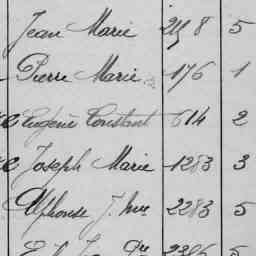 Jean Marie 218 5
Pierre Marie 176 1
Eugène Constant 614 2
Joseph Marie 1283 3
Alphonse J. Mie 2283 5
5